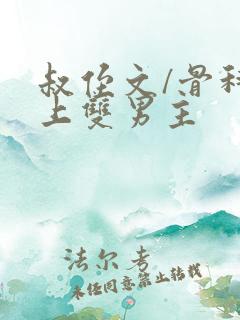 叔侄文/骨科
上雙男主
法尔考
未经同意禁止转载